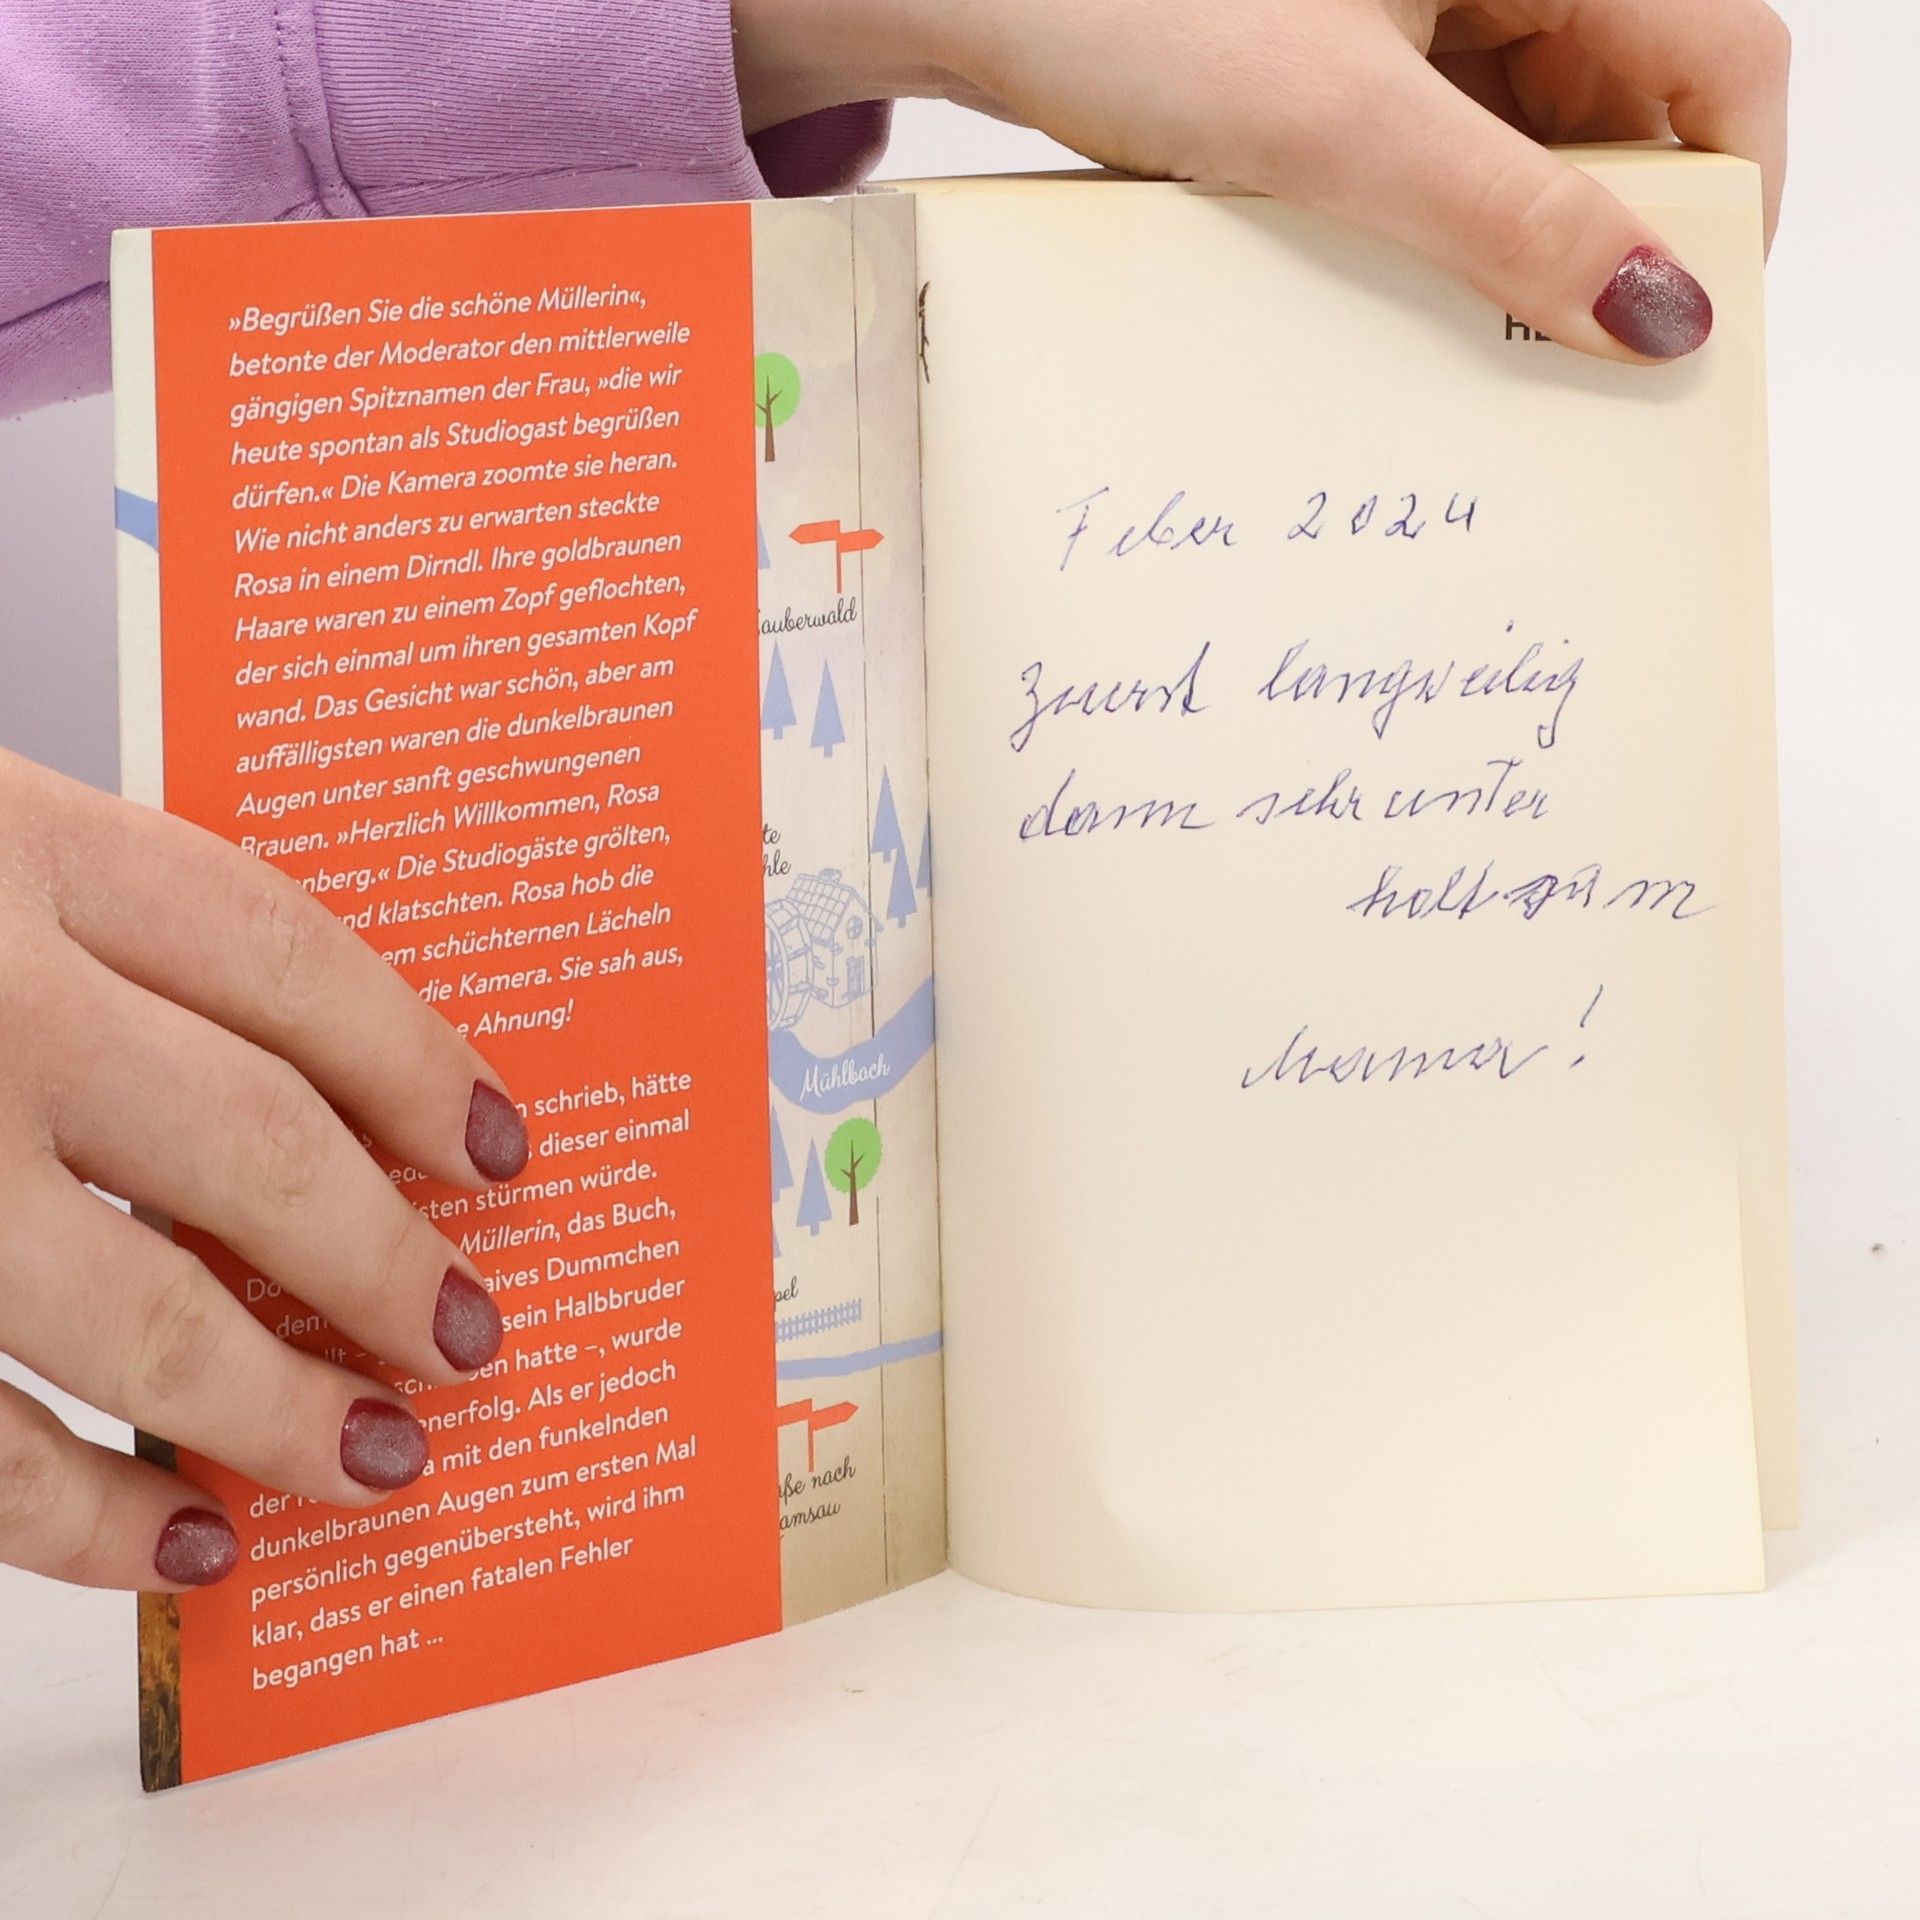 »Begrüßen Sie die schöne Müllerin«,
betonte der Moderator den mittlerweile
gängigen Spitznamen der Frau, »die wir
heute spontan als Studiogast begrüßen
dürfen.« Die Kamera zoomte sie heran.
Wie nicht anders zu erwarten steckte
Rosa in einem Dirndl. Ihre goldbraunen
Haare waren zu einem Zopf geflochten,
der sich einmal um ihren gesamten Kopf
wand. Das Gesicht war schön, aber am
auffälligsten waren die dunkelbraunen
Augen unter sanft geschwungenen
Brauen. »Herzlich Willkommen, Rosa
nberg.« Die Studiogäste grölten,
nd klatschten. Rosa hob die
em schüchternen Lächeln
die Kamera. Sie sah aus,
e Ahnung!
schrieb, hätte
dieser einmal
isten stürmen würde.
Müllerin, das Buch,
aives Dummchen
sein Halbbruder
en hatte –, wurde
enerfolg. Als er jedoch
der a mit den funkelnden
dunkelbraunen Augen zum ersten Mal
persönlich gegenübersteht, wird ihm
klar, dass er einen fatalen Fehler
begangen hat ...
auberwald
te
hle
Mühlbach
pel
aße nach
amsau
Feber 2024
Zuerst langweilig
dann sehr unter
haltsam
Mama!